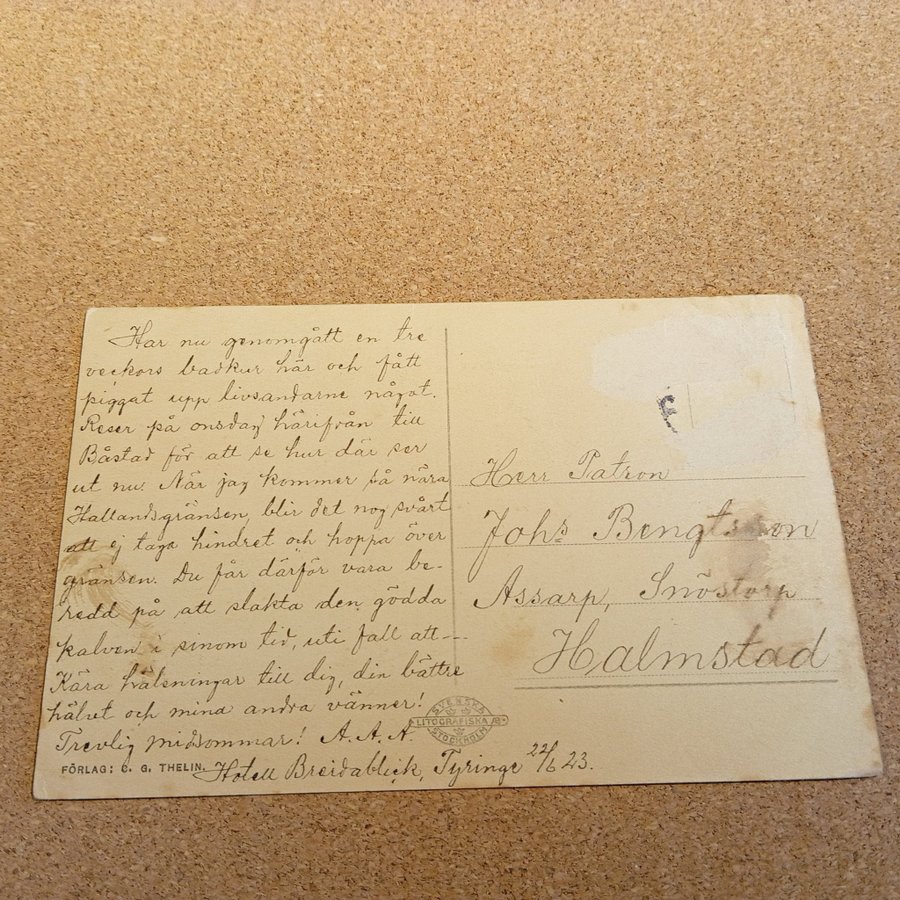 Har nu genomgått en tre
veckors badkur här och fått
piggat upp livsandarne något.
Reser på onsdag härifrån till
Båstad för att se hur där ser
ut nu. När jag kommer så nära
Hallandsgränsen blir det nog svårt
att ej taga hindret och hoppa över
gränsen. Du får därför vara be-
redd på att slakta den gödda
kalven i sinom tid, uti fall att---
Kära hälsningar till dig, din bättre
hälvt och mina andra vänner!
Trevlig midsommar! A. A. A.
Hotell Breidablick, Tyringe 22/6 23.
FÖRLAG: C. G. THELIN.
SVENSKA
LITOGRAFISKA AB
STOCKHOLM
Herr Patron
Johs Bengtsson
Assarp, Snöstorp
Halmstad